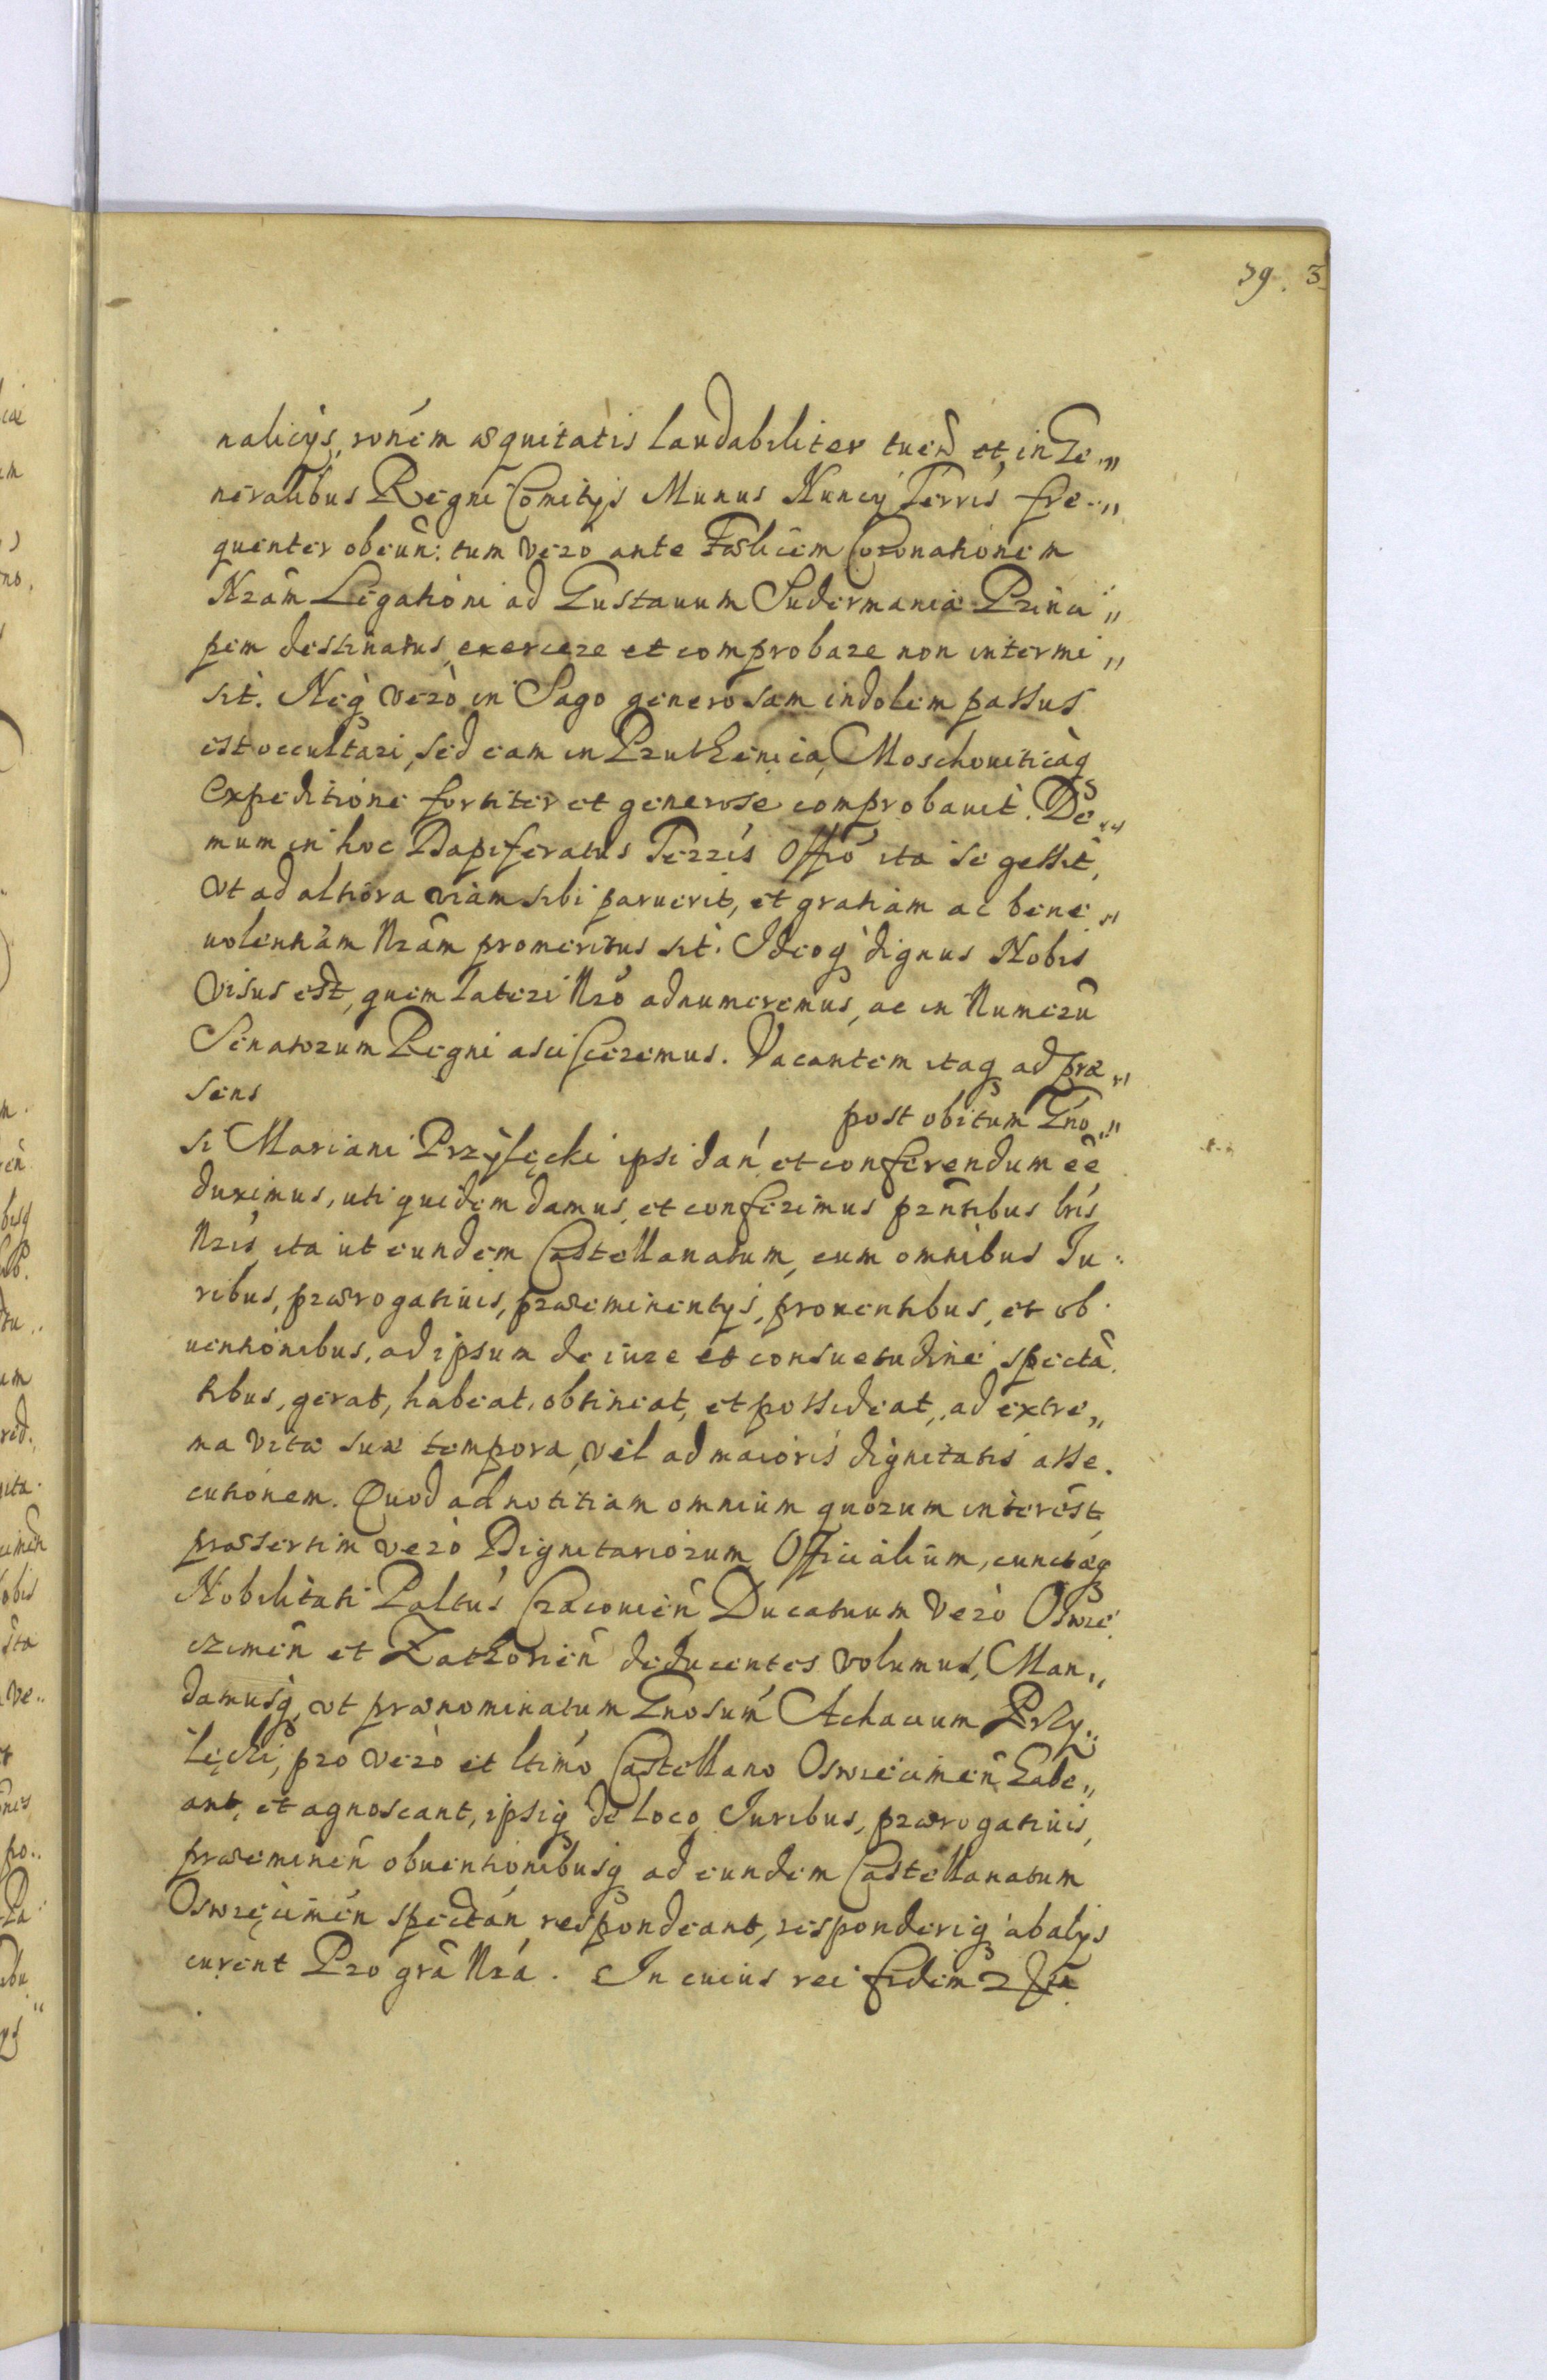 39. 3
nalicijs, ronem æquitatis laudabiliter tuen̄ et in Ge„
neralibus Regni Comitijs Munus Nuncij Terris fre„
quenter obeun̄: tum verò ante Fælicem Coronationem
Nrãm Legatione ad Gustauum Sudermaniæ Princi„
pem destinatus, exercere et comprobare non intermi„
sit. Neq̃ verò in Sago generosam indolem passus
est occultari, sed eam in Pruthenica, Moschouiticaq̃
Expeditione fortiter et generose comprobauit. De„
mum in hoc Dapiferatus Terris Offõ ita se gessit,
vt ad altiora viam sibi paruerit, et gratiam ac bene„
uolentiam Nrãm promeritus sit. Ideoq̃ dignus Nobis
visus est, quem Lateri Nrõ adnumeremus, ac in Numerũ
Senatorum Regni ascisceremus. Vacantem itaq̃ ad præ„
sens
post obitum Gno„
si Mariani Przÿłęcki ipsi dan̄ et conferendum eẽ
duximus, uti quidem damus et conferimus prñtibus lrĩs
Nrĩs, ita ut eundem Castellanatum, cum omnibus Iu„
ribus, prærogatiuis, præeminentijs, prouentibus, et ob„
uentionibus, ad ipsum de iure et consuetudine spectã„
tibus, gerat, habeat, obtineat, et possideat, ad extre„
ma vitæ suæ tempora, vel ad maioris dignitatis asse„
cutionem. Quod ad notitiam omnium quorum interest,
præsertim verò Dignitariorum Officialium, cunctæq̃
Nobilitati Paltus Cracouien̄ Ducatuum verò Oswie„
czimen̄ et Zathorien̄ deducentes volumus, Man„
damusq̃, vt prænominatum Gnosum Achacium Przy„
łęcki, pro verò et ltimo Castellano Oswiecimen̄ habe„
ant, et agnoscant, ipsiq̃ de loco, Iuribus, prærogatiuis,
præeminen̄ obuentionibusq̃ ad eundem Castellanatum
Oswięcimen̄ spectan̄ respondeant, responderiq̃ ab alijs
curent Pro grã Nrã. In cuius rei fidem